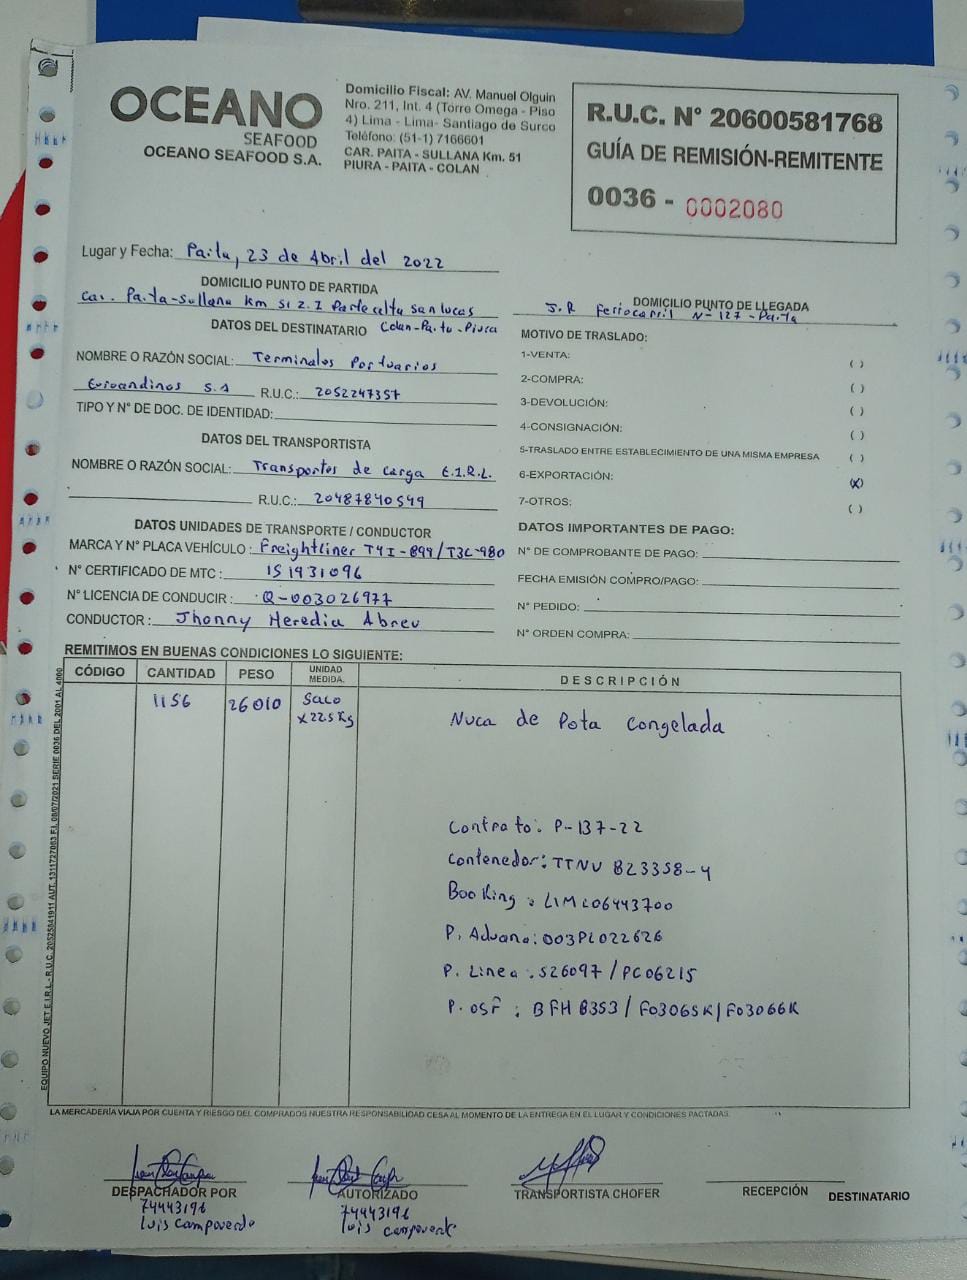 OCEANO
SEAFOOD
OCEANO SEAFOOD S.A.
Domicilio Fiscal: AV. Manuel Olguin
Nro. 211, Int. 4 (Torre Omega - Piso
4) Lima - Lima- Santiago de Surco
Teléfono: (51-1) 7166601
CAR. PAITA - SULLANA Km. 51
PIURA - PAITA - COLAN
R.U.C. N° 20600581768
GUÍA DE REMISIÓN-REMITENTE
0036 - 0002080
Lugar y Fecha: Paita, 23 de Abril del 2022
DOMICILIO PUNTO DE PARTIDA
Car. Paita-Sullana Km 51 Z.I Parte alta san lucas
Colan-Paita-Piura
DOMICILIO PUNTO DE LLEGADA
J.R Ferrocarril N-127-Paita
DATOS DEL DESTINATARIO
NOMBRE O RAZÓN SOCIAL: Terminales Portuarios
Euroandinos S.A R.U.C.: 2052247357
TIPO Y N° DE DOC. DE IDENTIDAD:
DATOS DEL TRANSPORTISTA
NOMBRE O RAZÓN SOCIAL: Transportes de carga E.I.R.L.
R.U.C.: 20487840549
DATOS UNIDADES DE TRANSPORTE / CONDUCTOR
MARCA Y N° PLACA VEHÍCULO: Freightliner T4I-899/T3C-980
N° CERTIFICADO DE MTC: 151931096
N° LICENCIA DE CONDUCIR: Q-003026977
CONDUCTOR: Jhonny Heredia Abreu
MOTIVO DE TRASLADO:
1-VENTA: ( )
2-COMPRA: ( )
3-DEVOLUCIÓN: ( )
4-CONSIGNACIÓN: ( )
5-TRASLADO ENTRE ESTABLECIMIENTO DE UNA MISMA EMPRESA ( )
6-EXPORTACIÓN: (X)
7-OTROS: ( )
DATOS IMPORTANTES DE PAGO:
N° DE COMPROBANTE DE PAGO:
FECHA EMISIÓN COMPRO/PAGO:
N° PEDIDO:
N° ORDEN COMPRA:
REMITIMOS EN BUENAS CONDICIONES LO SIGUIENTE:
CÓDIGO CANTIDAD PESO UNIDAD MEDIDA. DESCRIPCIÓN
1156 26010 Saco x22.5Kg Nuca de Pota Congelada
Contrato: P-137-22
Contenedor: TTNU 823358-4
Booking: LIMC06443700
P. Aduana: 003PL022626
P. Linea: 526097 / PC06215
P. OSF: BFH 8353 / F03065K / F03066K
EQUIPO NUEVO JET E.I.R.L.- R.U.C. 20525841911 AUT. 1311727083 F.I. 08/07/2021 SERIE 0036 DEL 2001 AL 4000
LA MERCADERÍA VIAJA POR CUENTA Y RIESGO DEL COMPRADOS NUESTRA RESPONSABILIDAD CESA AL MOMENTO DE LA ENTREGA EN EL LUGAR Y CONDICIONES PACTADAS.
DESPACHADOR POR AUTORIZADO TRANSPORTISTA CHOFER RECEPCIÓN DESTINATARIO
74443196 74443196
Luis Campoverde Luis Campoverde